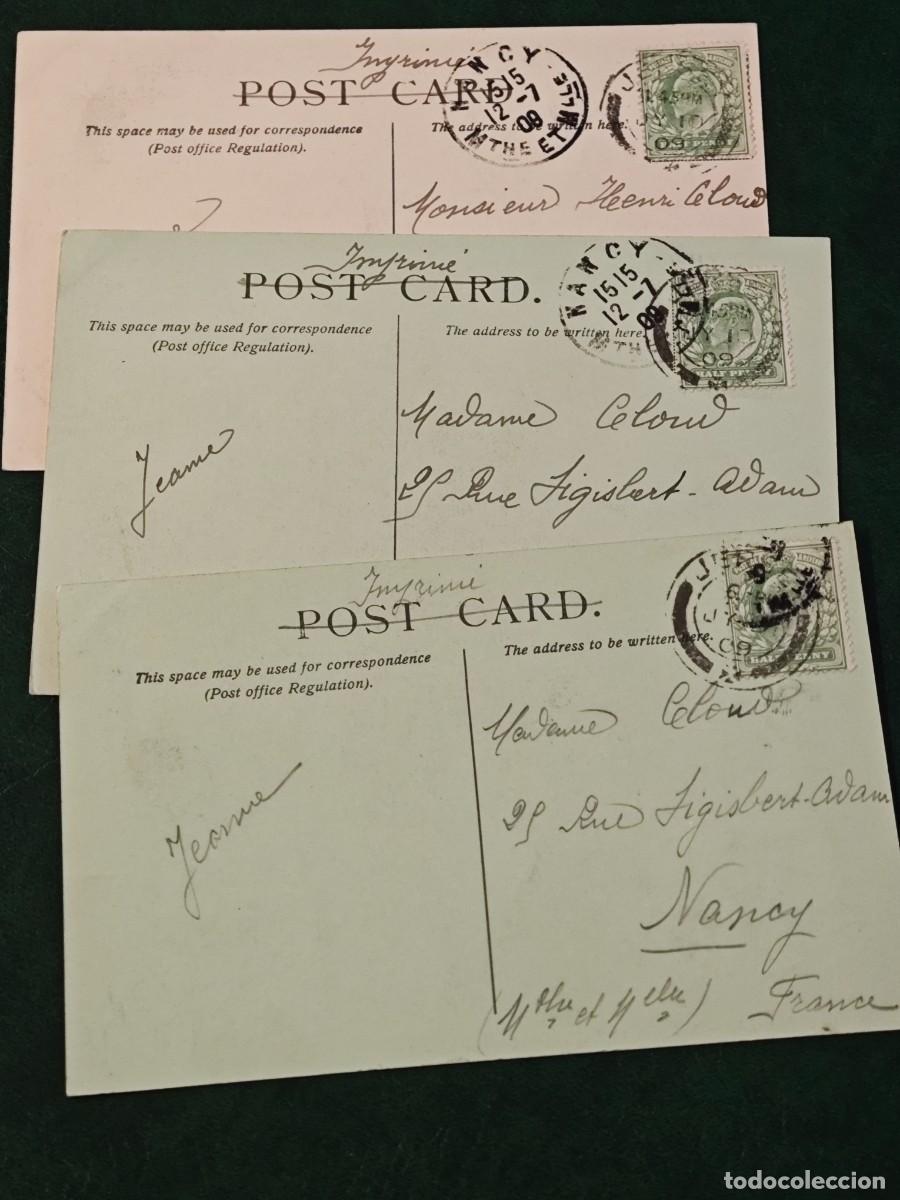 Imprimé
POST CARD.
This space may be used for correspondence
(Post office Regulation).
The address to be written here.
NANCY
1515
12-7
09
MTHE ET MLLE
J
09
HALF PENNY
Monsieur Henri Cloud
Imprimé
POST CARD.
This space may be used for correspondence
(Post office Regulation).
The address to be written here.
NANCY
1515
12-7
09
09
HALF PENNY
Jeanne
Madame Cloud
25 Rue Sigisbert-Adam
Imprimé
POST CARD.
This space may be used for correspondence
(Post office Regulation).
The address to be written here.
JE
JY
09
HALF PENNY
Jeanne
Madame Cloud
25 Rue Sigisbert-Adam
Nancy
(Mthe et Mlle)
France
todocoleccion